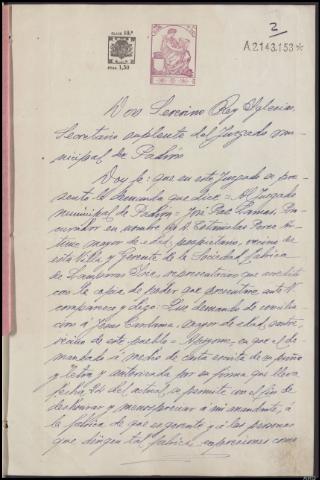 2
CLASE 8.ª
A2143,153*
Don Severino Rey Iglesias
Secretario suplente del Juzgado mu-
nicipal de Padrón
Doy fe: que en este Juzgado se pre-
sentó la demanda que dice = Al Juzgado
municipal de Padrón = José Rae Ramos, Pro-
curador en nombre de D.
mayor de edad, propietario, vecino de
esta Villa y Gerente de la Sociedad fabrica
de Lámparas representación que acredito
con la copia de poder que
compareço y digo: Que demando de concilia-
ción á Jesús Carbona, mayor de edad,
vecino de este pueblo = Apoyome, en que el de-
mandado á medio de carta escrita de su puño
y letra y autorizada por su firma que lleva
fecha 24 del actual, se permite con el fin de
deshonrar y menospreciar á mi mandante, á
la fabrica de que es gerente y á las personas
que dirigen tal fabrica, expresiones como